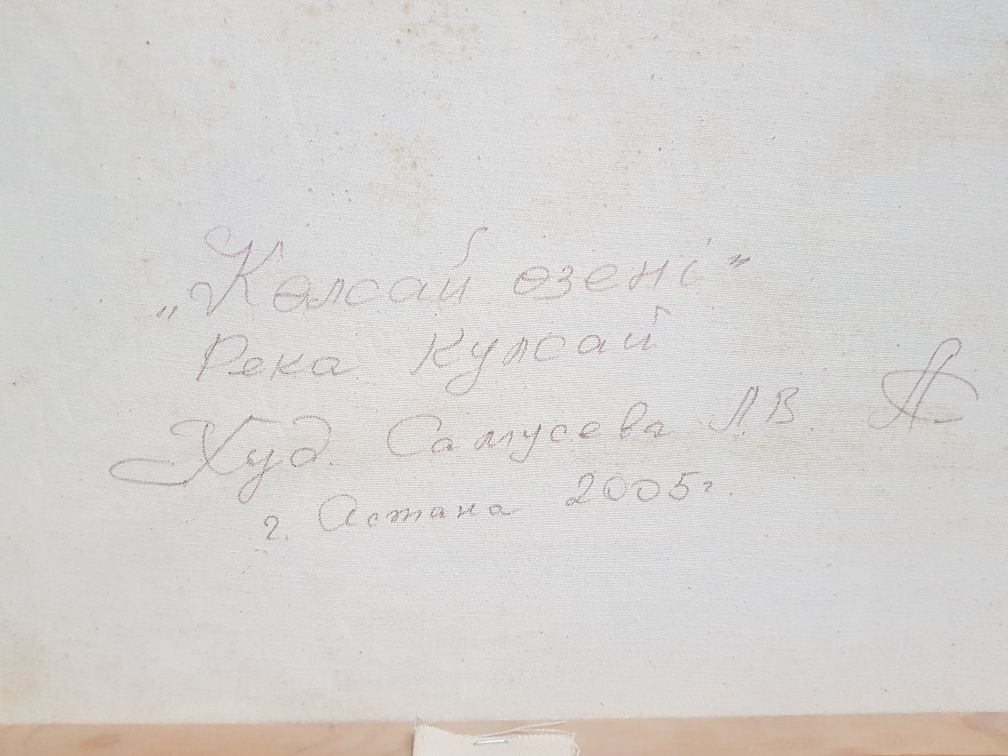 „Көлсай өзені"
Река Кулсай
Худ. Самусева Л.В.
г. Астана 2005г.